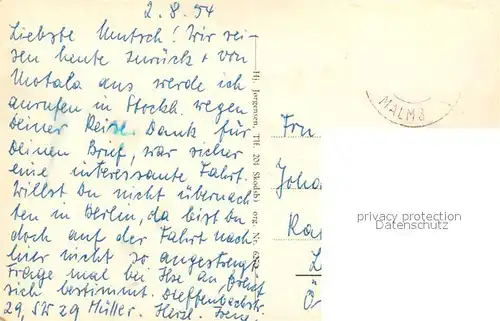 2.8.54
Liebste Mutsch! Wir rei-
sen heute zurück + von
Motala aus werde ich
anrufen in Stockh. wegen
Deiner Reise. Dank für
Deinen Brief, war sicher
eine interessante Fahrt.
Willst Du nicht übernach-
ten in Berlin, da bist Du
doch auf der Fahrt nach
hier nicht so angestrengt
Frage mal bei Ilse an,
sich bestimmt. Dieffenbachstr.
29, SW 29 Müller. Herzl.
Hj. Jørgensen, Tlf. 201 Skodsborg Nr.
MALMÖ
Frau
Joha
Ra
privacy protection
Datenschutz